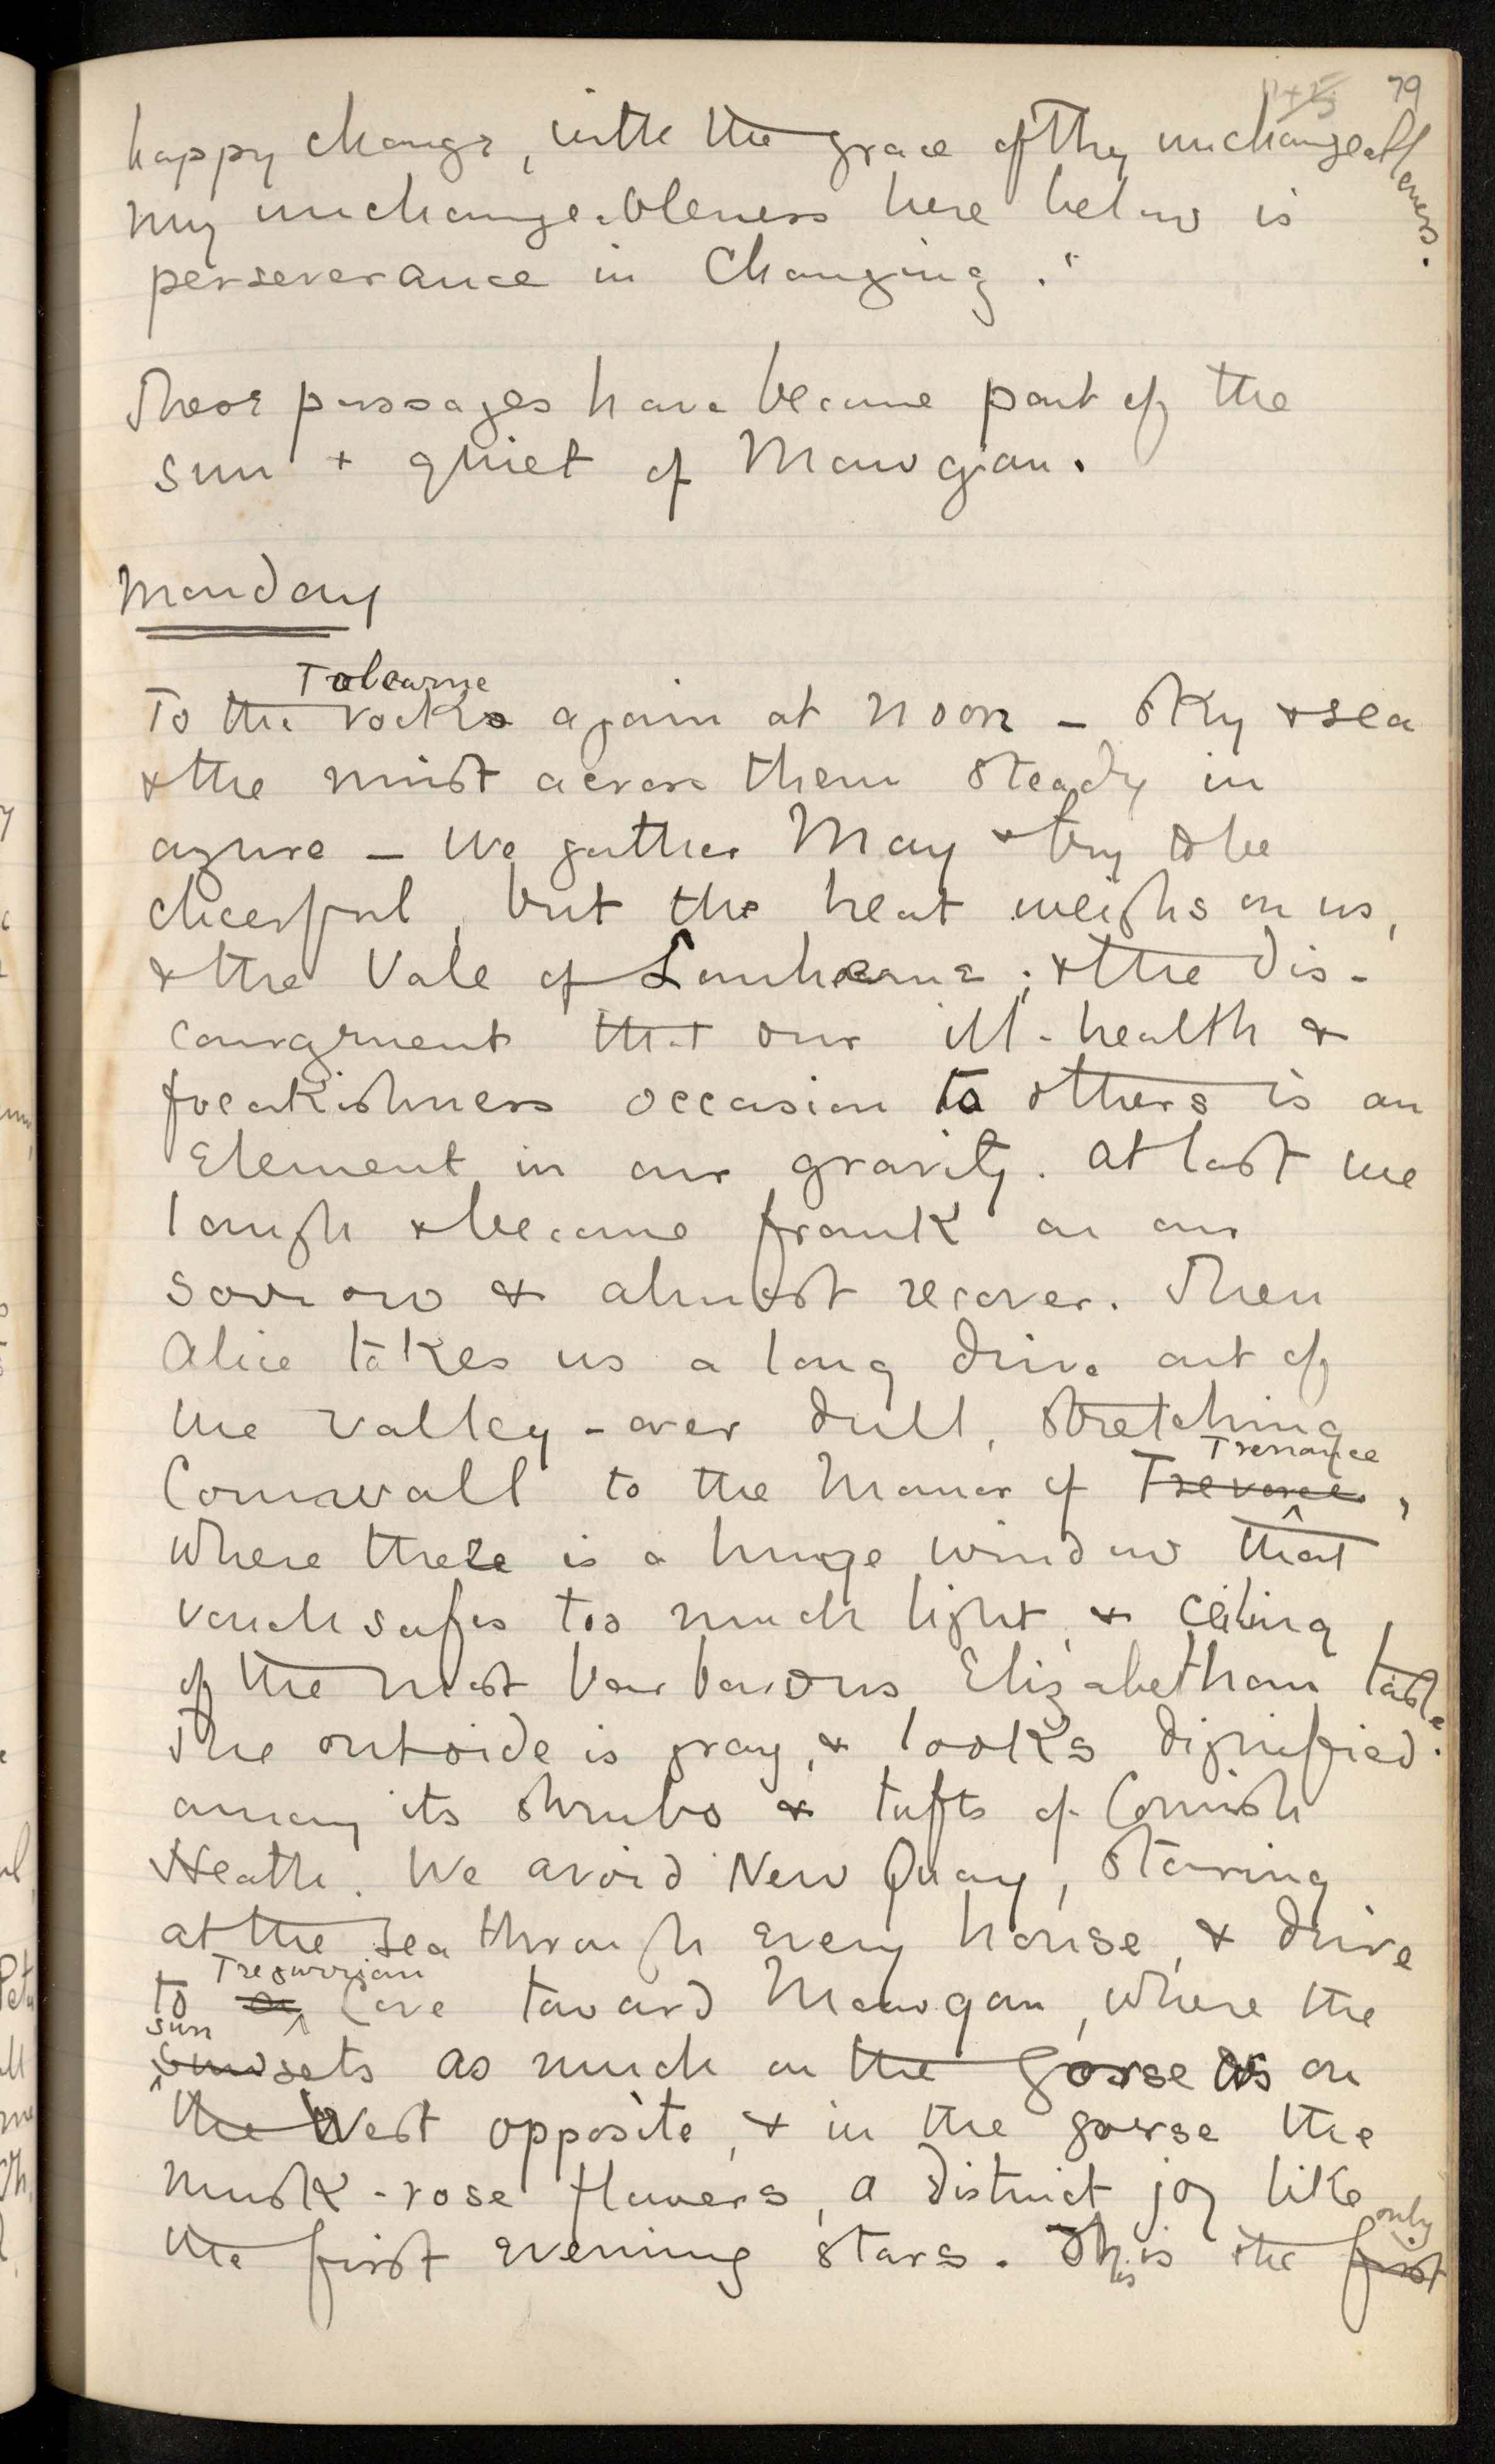 79
happy change, with the grace of Thy unchangeableness.
my unchangeableness here below is
perseverance in Changing."
These passages have become part of the
sun + quiet of Mawgan.
Monday
Tolcarne
To the rocks again at noon – sky & sea
& the mist across them steady in
azure – We gather May & try to be
cheerful, but the heat weighs on us,
& the Vale of Lanherne; & the dis-
couragment that our ill-health &
freakishness occasion to others is an
Element in our gravity. At last we
laugh & become frank on our
sorrow & almost recover. Then
Alice takes us a long drive out of
the valley – over dull, stretching
Trerrance
Cornwall to the Manor of Trevorce,
where there is a huge window that
vouchsafes too much light, & ceiling
of the most barbarous Elizabethan taste
The outside is gray, & looks dignified.
among its shrubs & tufts of Cornish
Heath. We avoid New Quay, staring
at the sea through every house, & drive
Tregurrian
to a Cove toward Mawgan, where the
sun
sunsets as much on the Gorse as on
the West opposite, & in the gorse the
musk-rose flowers, a distinct joy like
only
the first evening stars. This is the first